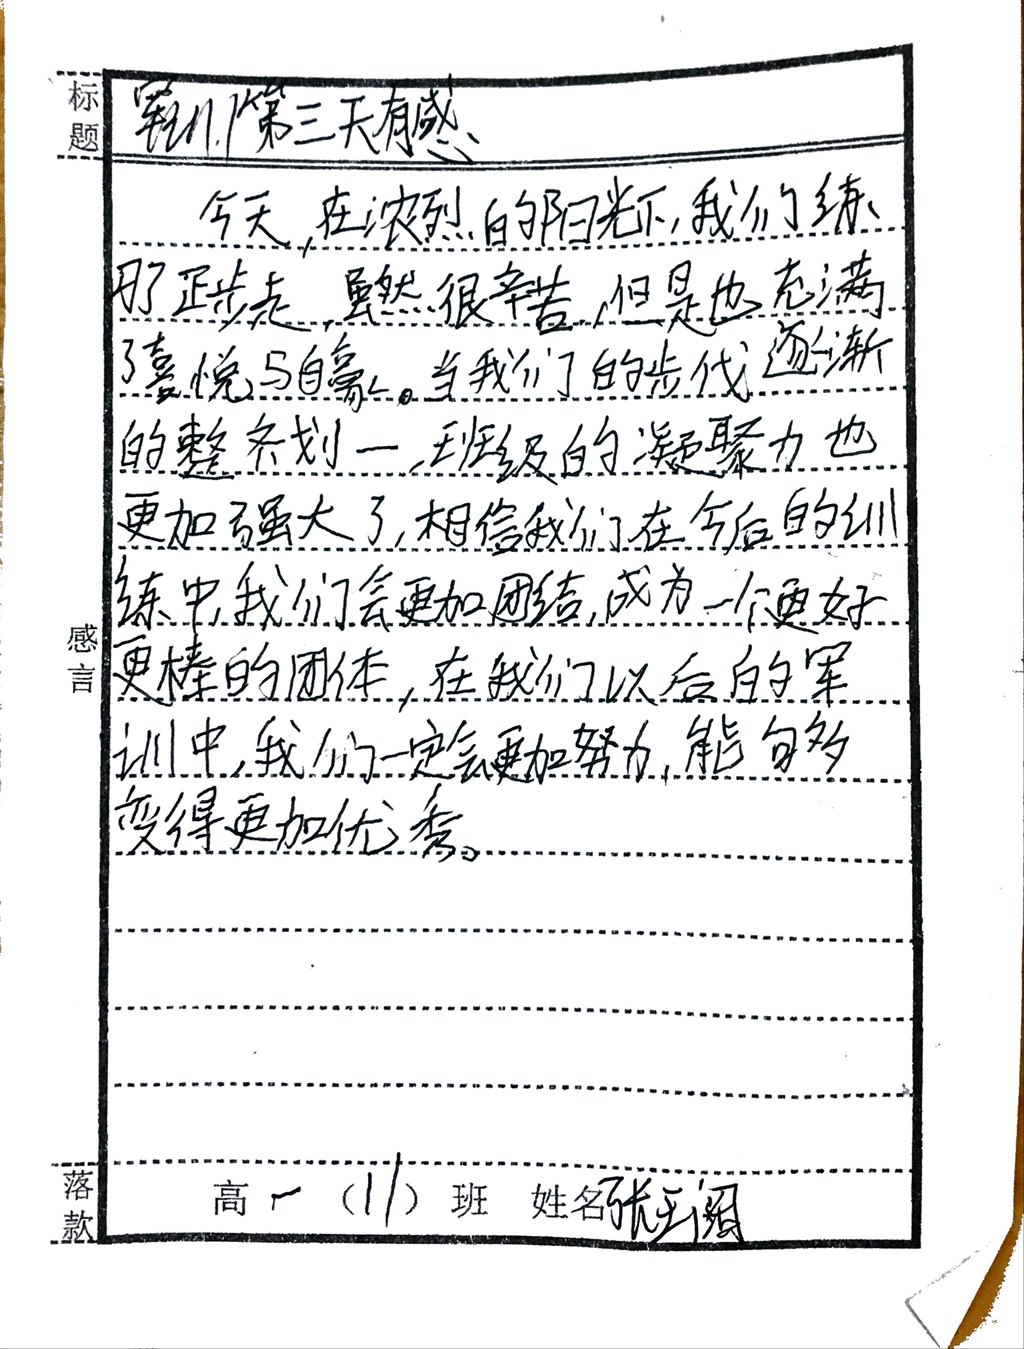 标题
军训第三天有感
今天,在浓烈的阳光下,我们练
习了正步走,虽然很辛苦,但是也充满
了喜悦与自豪。当我们的步伐逐渐
的整齐划一,班级的凝聚力也
更加强大了,相信我们在今后的训
练中,我们会更加团结,成为一个更好
更棒的团体,在我们以后的军
训中,我们一定会更加努力,能够
变得更加优秀。
感言
落款
高一(11)班 姓名张玉